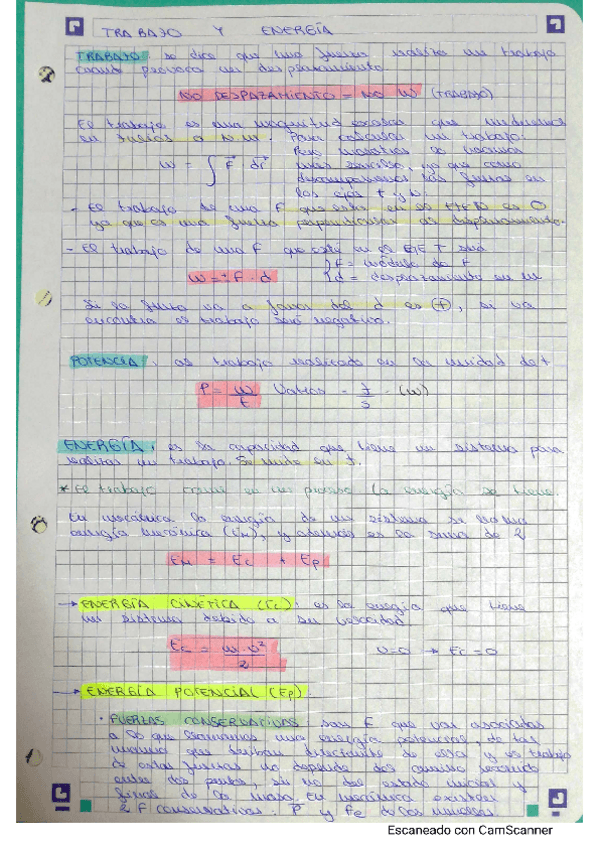 TRABAJO Y ENERGÍA
TRABAJO: se dice que una fuerza realiza un trabajo
cuando provoca un desplazamiento
NO DESPAZAMIENTO = NO W (TRABAJO)
El trabajo es una magnitud escalar que mediremos
en Julios o N·m. Para calcular un trabajo:
W = ∫ F⃗ · dr⃗
Pero nosotros lo haremos
más sencillo, ya que como
descomponemos las fuerzas en
los ejes t y N:
- El trabajo de una F que esté en el EJE N es 0
ya que es una fuerza perpendicular al desplazamiento.
- El trabajo de una F que esté en el EJE T será
W = ± F · d
F = módulo de F
d = desplazamiento en m
Si la fuerza va a favor del d es (+), si va
en contra el trabajo será negativo.
POTENCIA: es trabajo realizado en la unidad de t
P = W/t Vatios - J/s - (W)
ENERGÍA: es la capacidad que tiene un sistema para
realizar un trabajo. Se mide en J.
* El trabajo es un proceso la energía se tiene.
En mecánica la energía de un sistema se llama
energía mecánica (Em), y además es la suma de 2
Em = Ec + Ep
→ ENERGÍA CINÉTICA (Ec): es la energía que tiene
un sistema debido a su velocidad
Ec = m·v²/2 v=0 → Ec=0
→ ENERGÍA POTENCIAL (Ep)
· FUERZAS CONSERVATIVAS: son F que van asociadas
a lo que llamamos una energía potencial, de tal
manera que derivan directamente de ella y el trabajo
de estas fuerzas no depende del camino
entre dos puntos, si no del estado inicial y
final de la masa. En mecánica existen
2 F conservativas: P y Fe
Escaneado con CamScanner